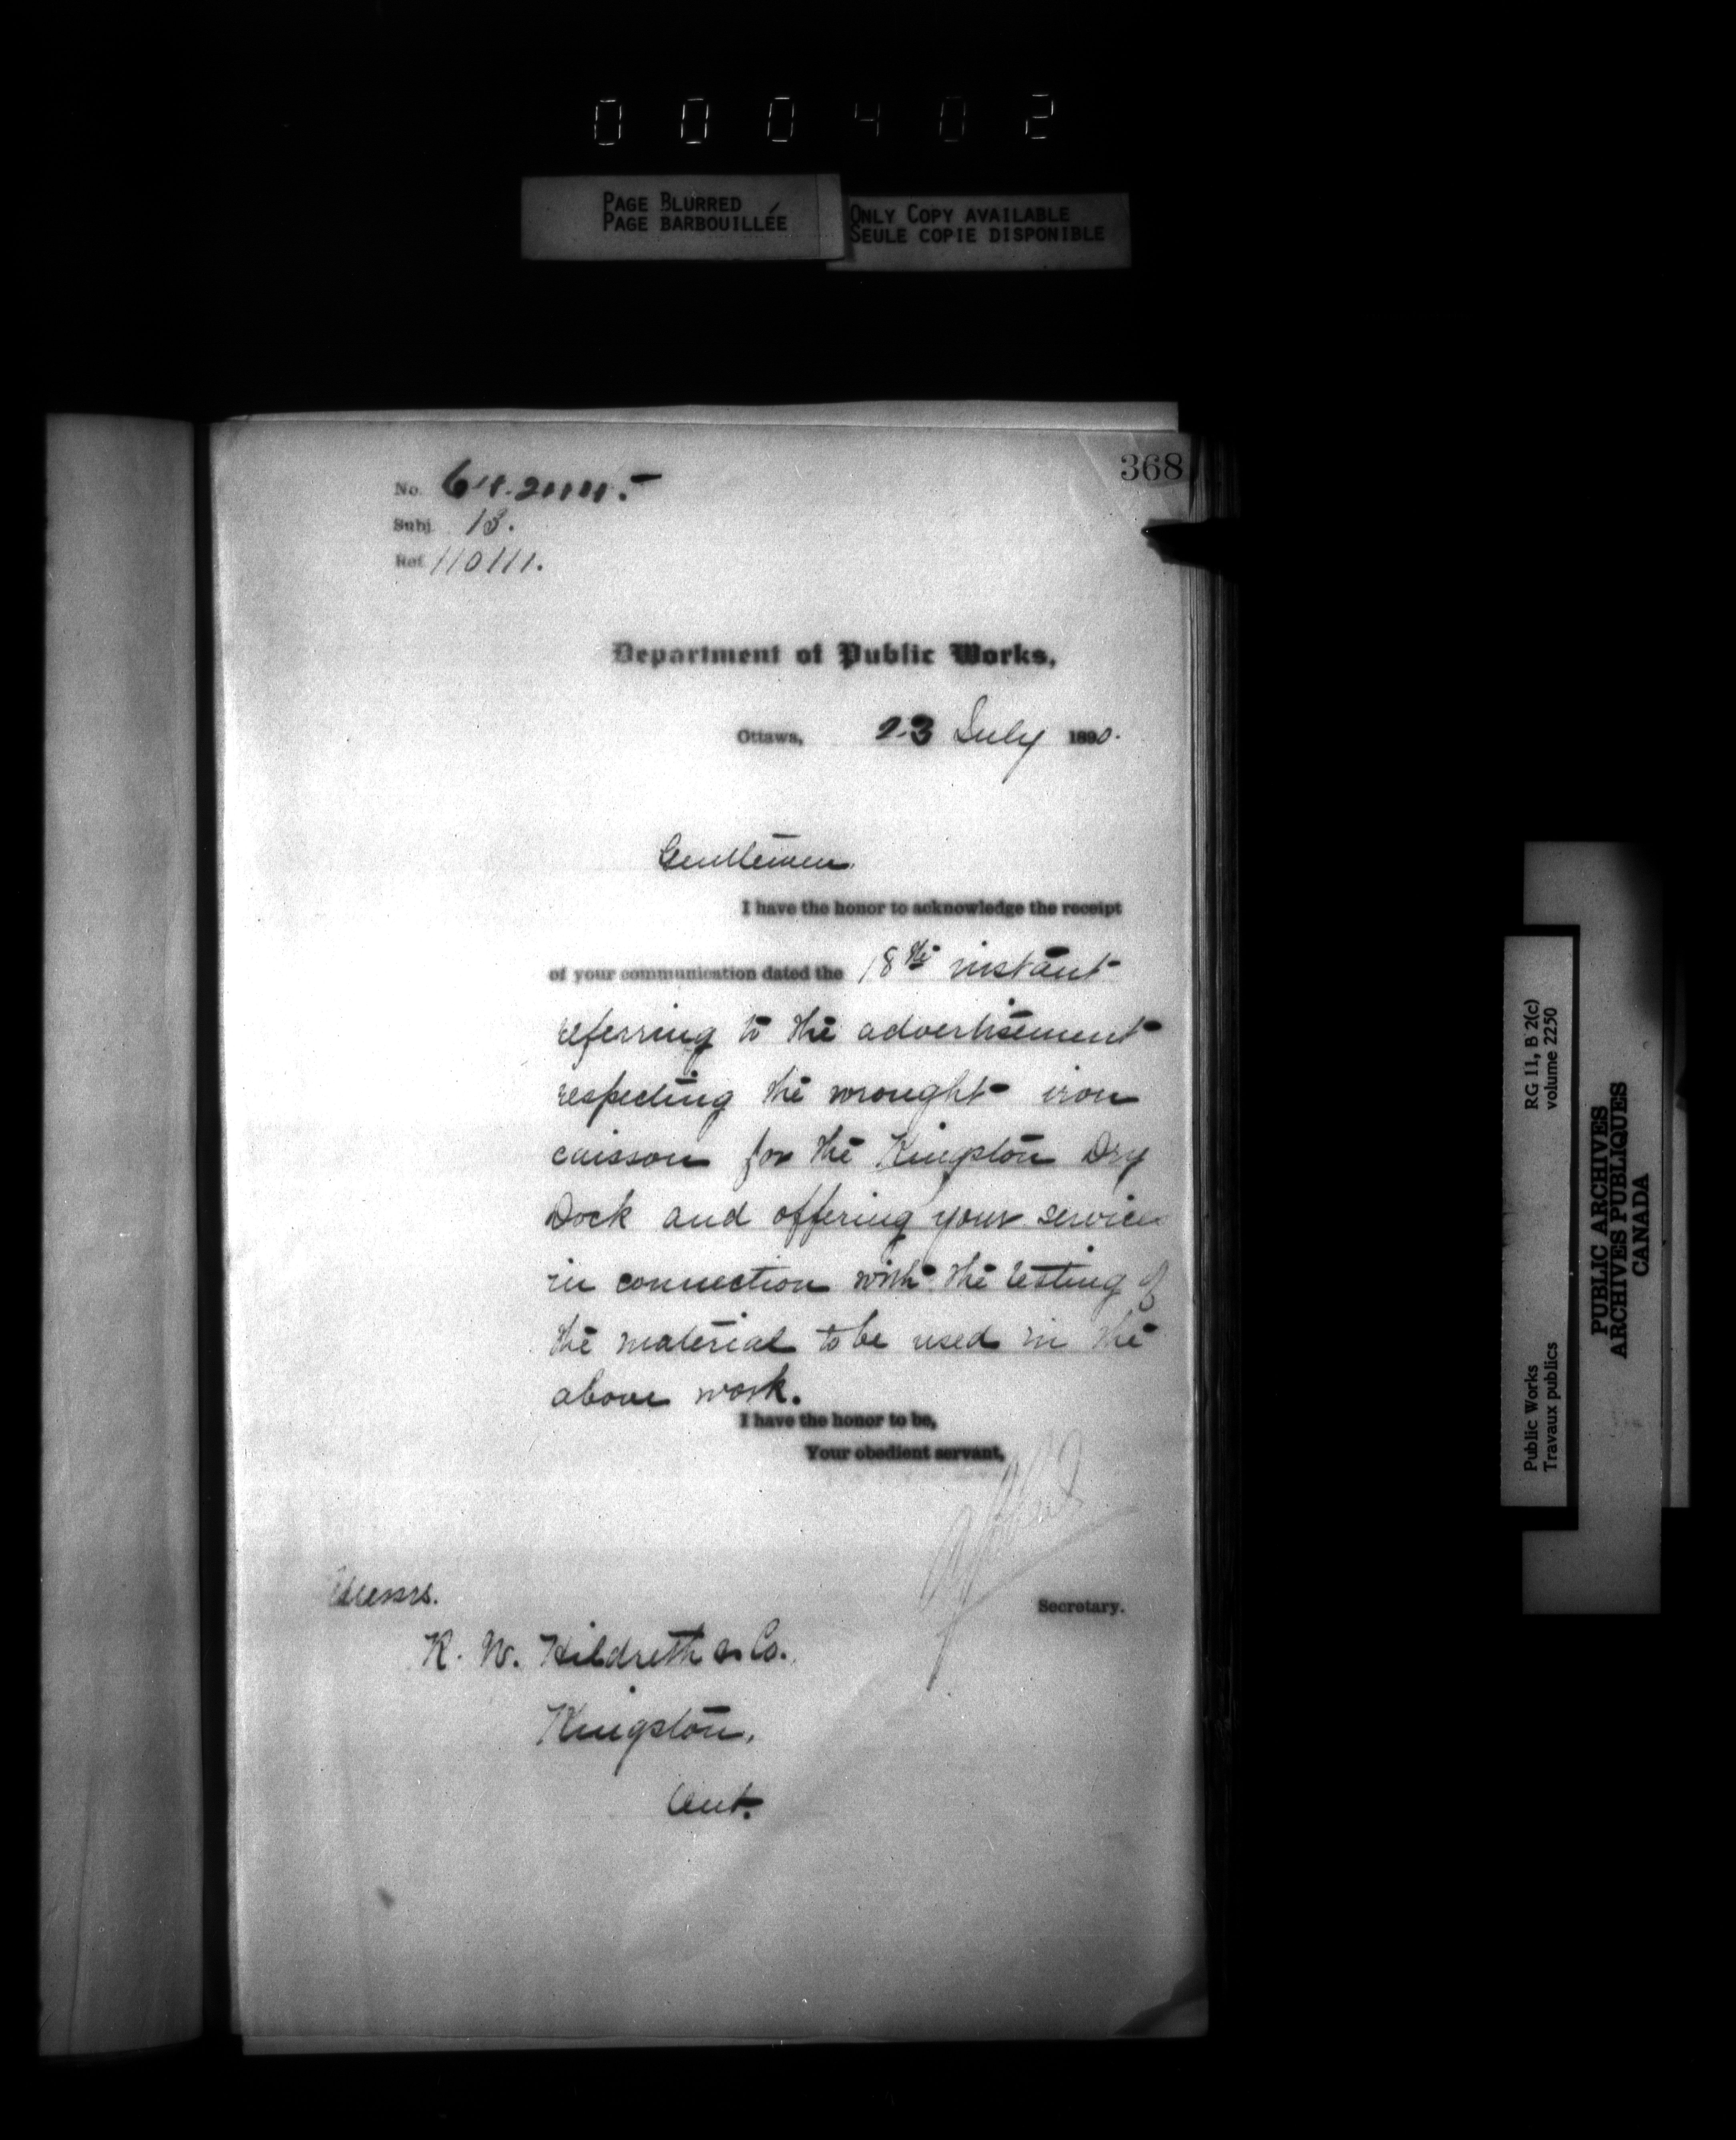 000402
PAGE BLURRED
PAGE BARBOUILLÉE
ONLY COPY AVAILABLE
SEULE COPIE DISPONIBLE
368
No.
Subj. 13.
Ref. 110111.
Department of Public Works,
Ottawa, 23 July 1890.
Gentlemen,
I have the honor to acknowledge the receipt
of your communication dated the 18th instant
referring to the advertisement
respecting the wrought iron
caisson for the Kingston Dry
Dock and offering your services
in connection with the testing of
the material to be used in the
above work.
I have the honor to be,
Your obedient servant,
Secretary.
Messrs.
R. W. Hildreth & Co.
Kingston,
Ont.
RG 11, B 2(c)
volume 2250
Public Works
Travaux publics
PUBLIC ARCHIVES
ARCHIVES PUBLIQUES
CANADA